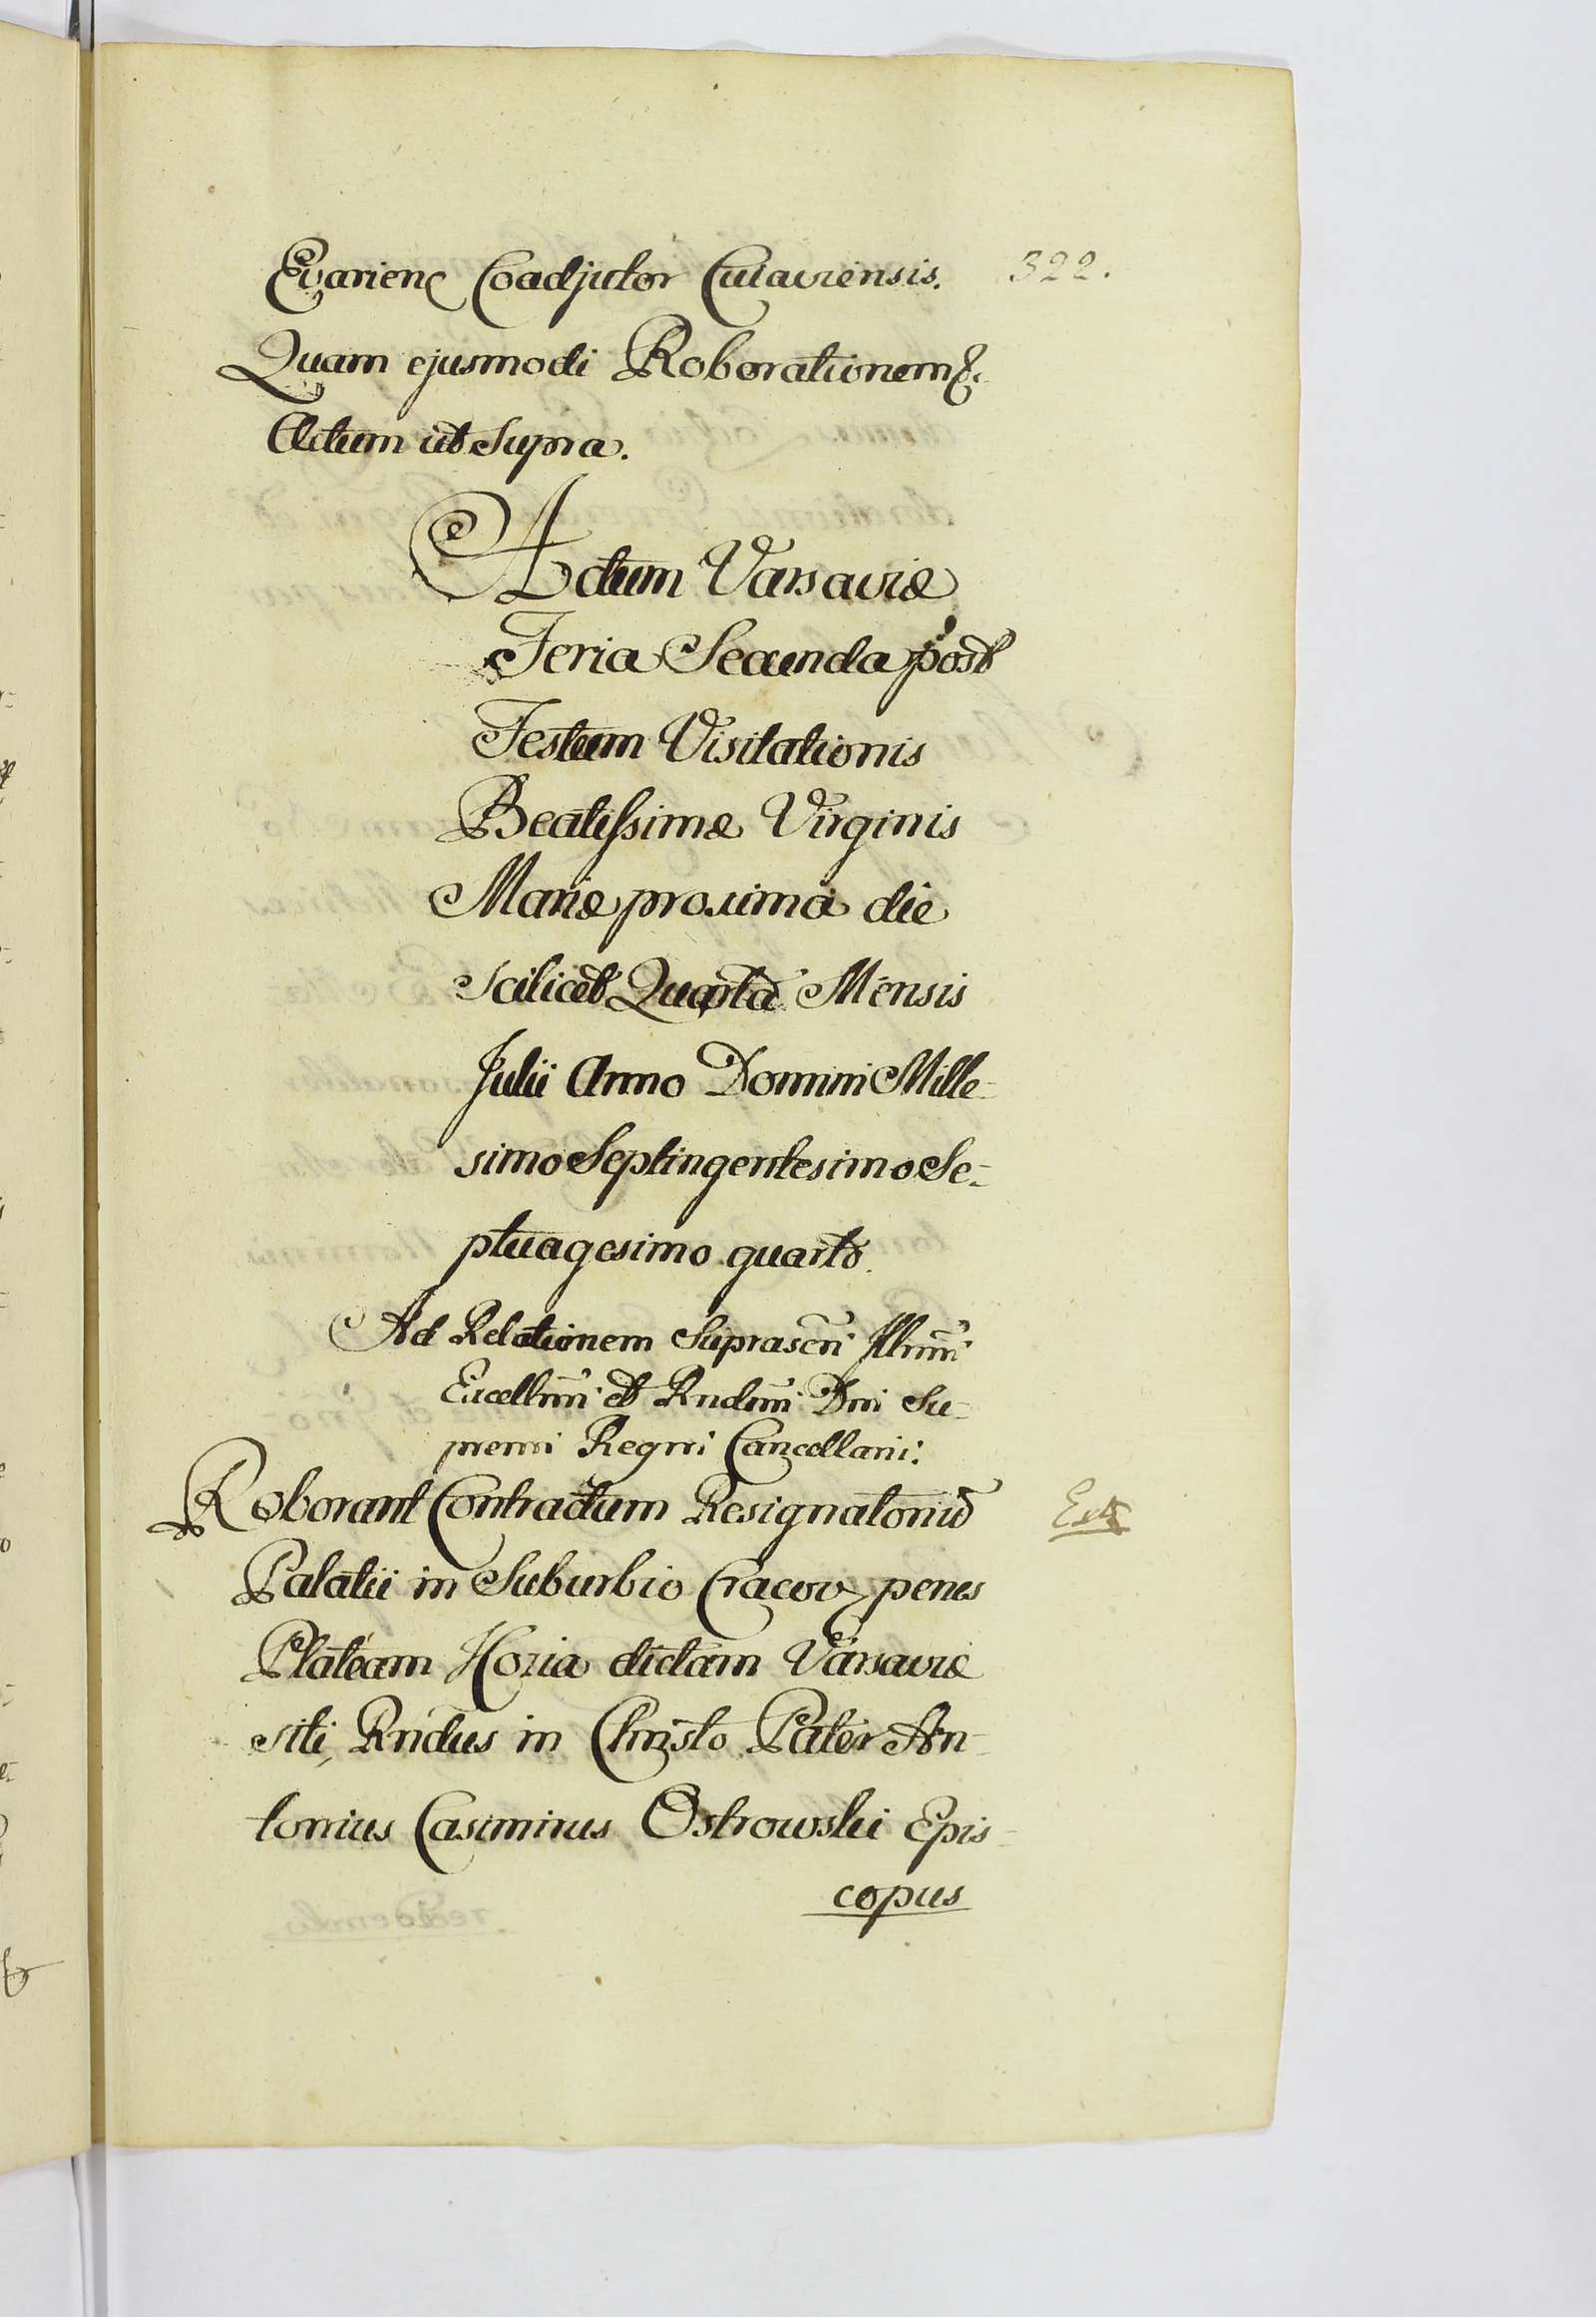 Evariens Coadjutor Cuiaviensis. 322.
Quam ejusmodi Roborationem &c.
Actum ut Supra.
Actum Varsaviæ
Feria Secunda post
Festum Visitationis
Beatissimæ Virginis
Mariæ proxima die
scilicet Quarta Mensis
Julii Anno Domini Mille-
simo Septingentesimo Se-
ptuagesimo quarto.
Ad Relationem Suprascti Illmi
Excellmi et Rndmi Dni Su-
premi Regni Cancellarii:
Roborant Contractum Resignatoriū Ext
Palatii in Suburbio Cracov: penes
Plateam Hozia dictam Varsaviæ
siti, Rndus in Christo Pater An-
tonius Casimirus Ostrowski Epis-
copus